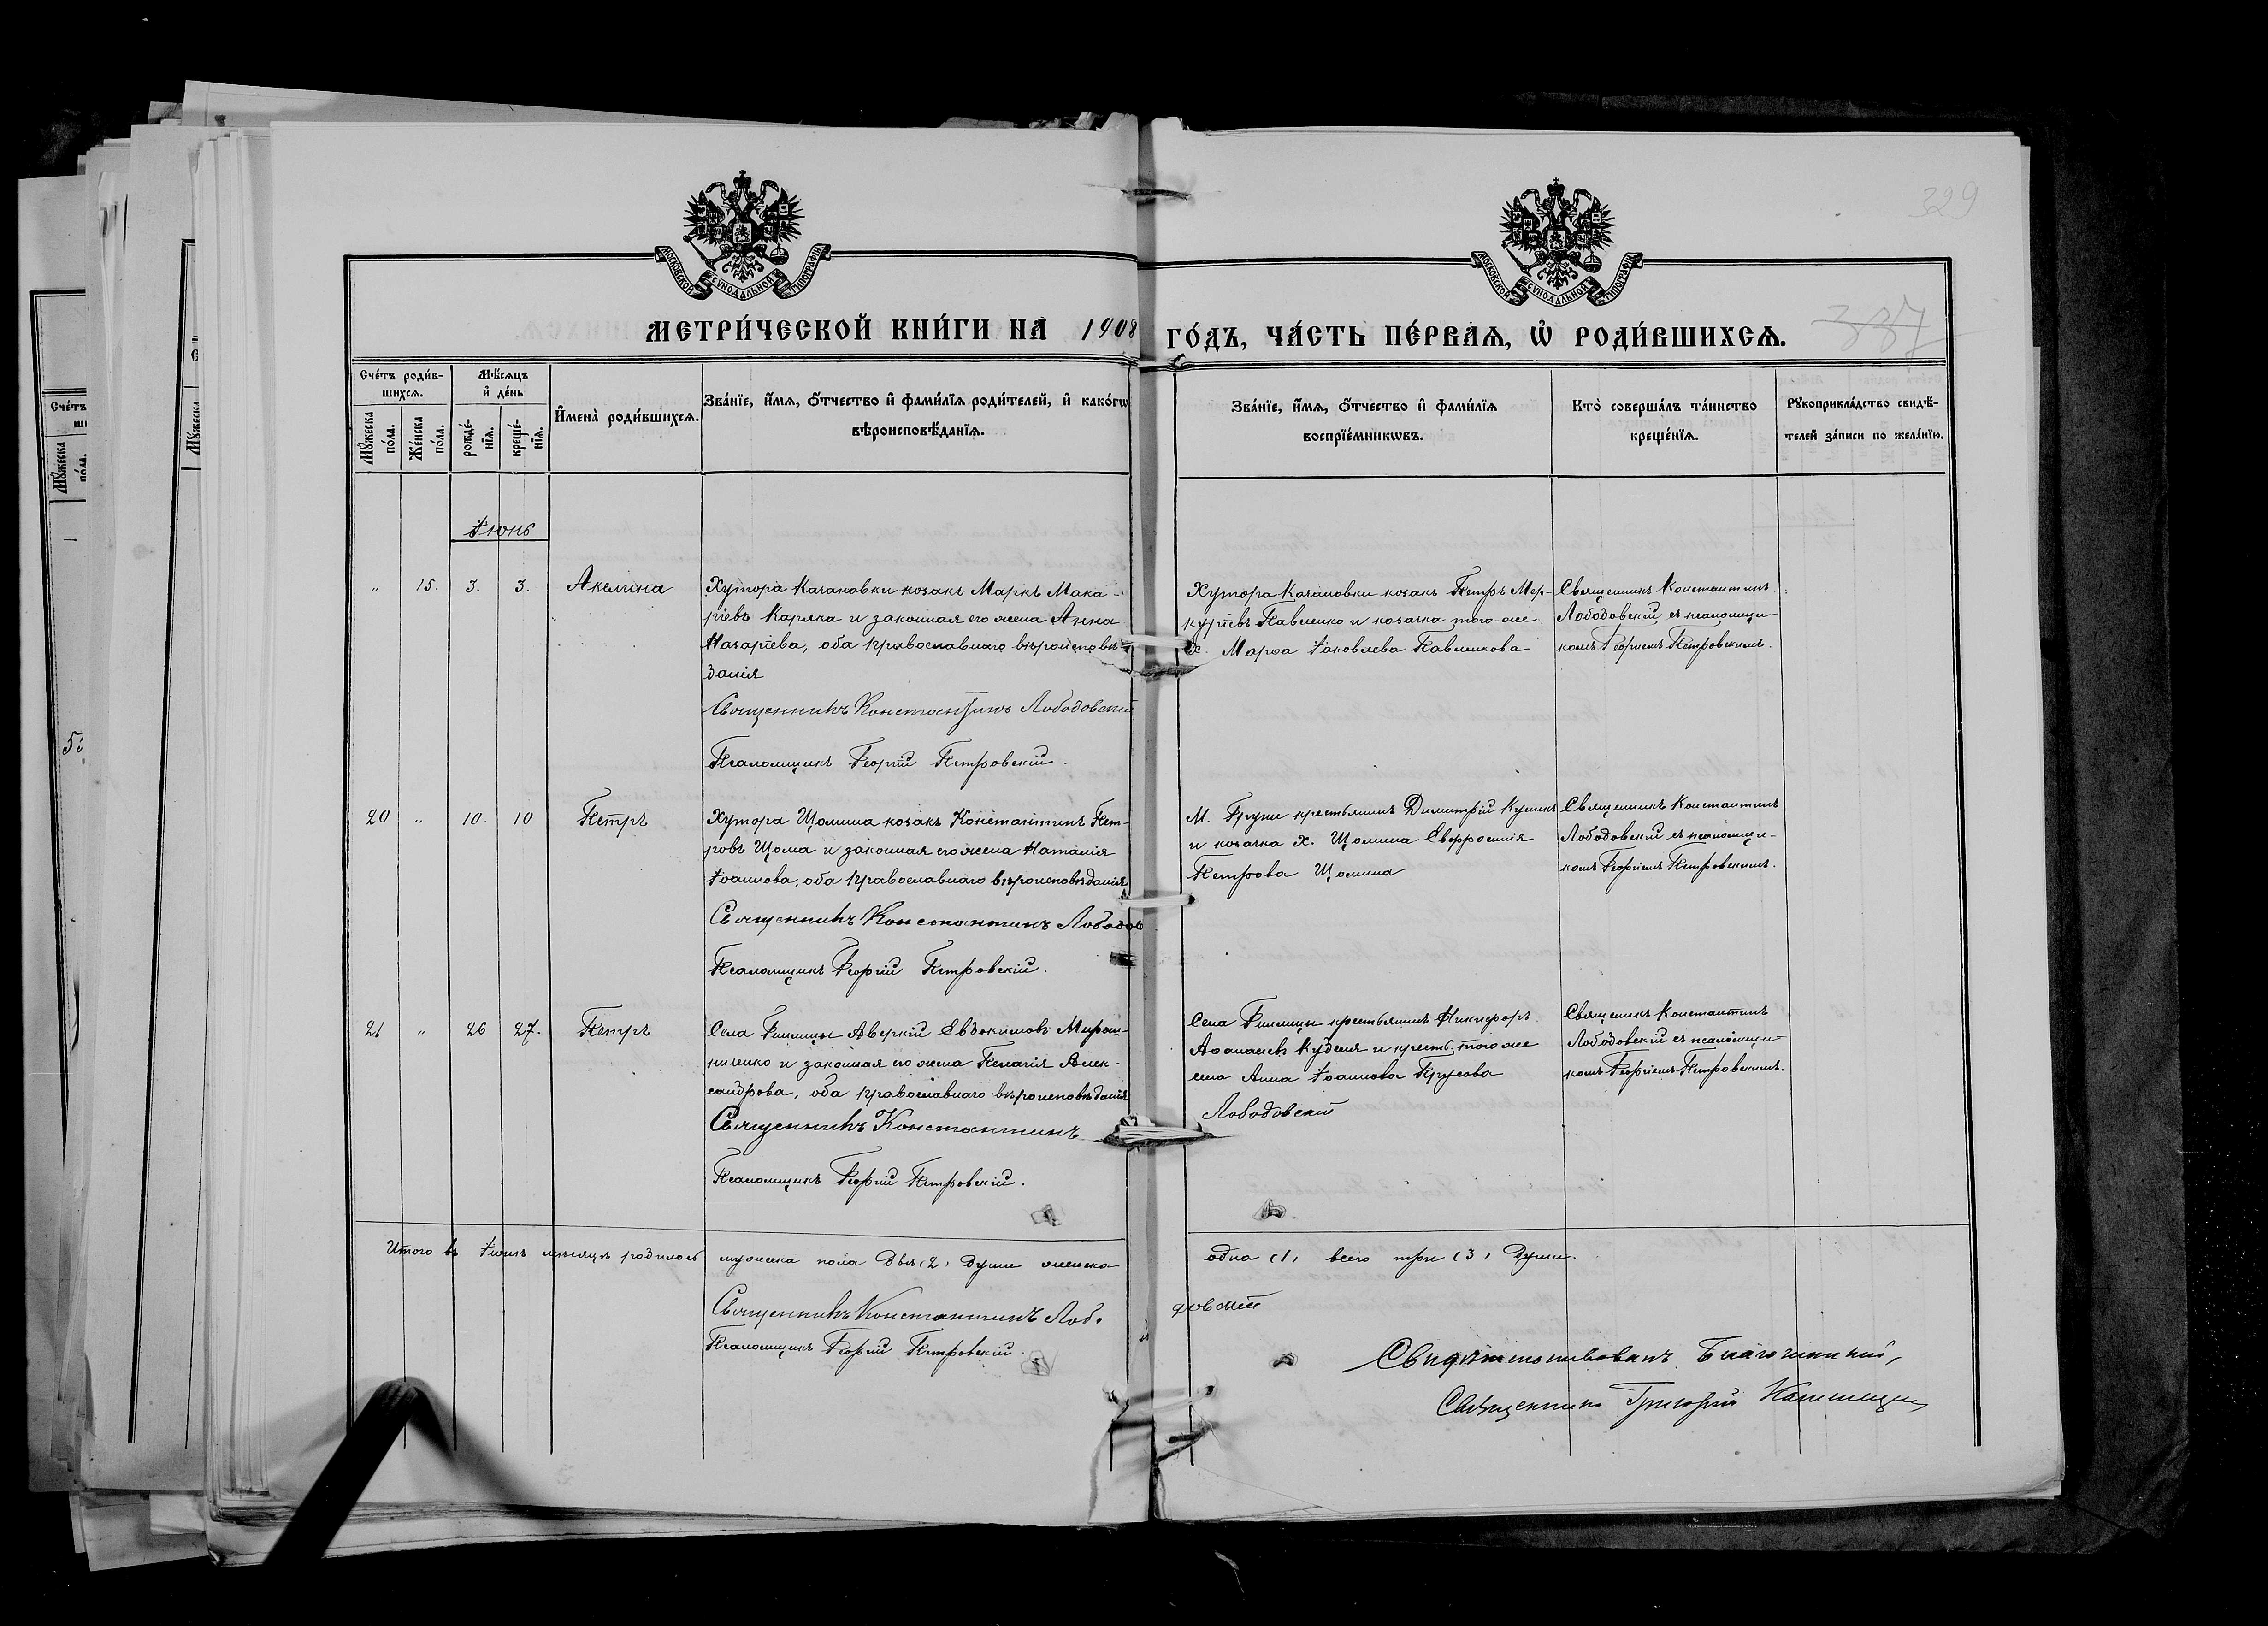 329
МОСКОВСКОЙ СѴНОДАЛЬНОЙ ТИПОГРАФІИ
МОСКОВСКОЙ СѴНОДАЛЬНОЙ ТИПОГРАФІИ
МЕТРИ́ЧЕСКОЙ КНИ́ГИ НА 1908 ГО́ДЪ, ЧА́СТЬ ПЕ́РВАѦ, Ѽ РОДИ́ВШИХСѦ.
337
Сче́тъ роди́в-
шихсѧ.
Мꙋ́жеска по́ла.
Же́нска по́ла.
Мѣ́сѧцъ
и҆ де́нь
рожде́-
нїѧ.
креще́-
нїѧ.
И҆мена̀ роди́вшихсѧ.
Зва́нїе, и҆́мѧ, ѻ҆́тчество и҆ фами́лїѧ роди́телей, и҆ како́гѡ
вѣроисповѣ́данїѧ.
Зва́нїе, и҆́мѧ, ѻ҆́тчество и҆ фами́лїѧ
воспрїе́мникѡвъ.
Кто̀ соверша́лъ та́инство
креще́нїѧ.
Рꙋкоприкла́дство свидѣ́-
телей за́писи по жела́нїю.
Іюнь
„ 15. 3. 3. Акелина
Хутора Качановки козакъ Маркъ Мака-
ріевъ Каряка и законная его жена Анна
Назаріева, оба православнаго вѣроисповѣ-
данія
Священникъ Константинъ Лободовскій
Псаломщикъ Георгій Петровскій.
Хутора Качановки козакъ Петръ Мер-
куріевъ Павленко и козачка того-же
х. Марѳа Іаковлева Павленкова
Священникъ Константинъ
Лободовскій съ псаломщи-
комъ Георгіемъ Петровскимъ.
20 „ 10. 10 Петръ
Хутора Щомина козакъ Константинъ Пет-
ровъ Щома и законная его жена Наталія
Іоаннова, оба православнаго вѣроисповѣданія
Священникъ Константинъ Лободов
Псаломщикъ Георгій Петровскій.
М. Груни крестьянинъ Димитрій
и козачка х. Щомина Евфросинія
Петрова Щомина
Священникъ Константинъ
Лободовскій съ псаломщи-
комъ Георгіемъ Петровскимъ.
21 „ 26 27. Петръ
Села Аверкій Евдокимовъ Мирош-
ниченко и законная его жена Пелагія Алек-
сандрова, оба православнаго вѣроисповѣданія
Священникъ Константинъ
Лободовскій
Псаломщикъ Георгій Петровскій.
Села крестьянинъ Никифоръ
Аѳанасіевъ и крест. того же
села Анна Іоаннова
Священникъ Константинъ
Лободовскій съ псаломщи-
комъ Георгіемъ Петровскимъ.
Итого въ Іюнѣ мѣсяцѣ родилось мужеска пола двѣ (2) души женска одна (1) всего три (3) души.
Священникъ Константинъ Лобо
довскій
Псаломщикъ Георгій Петровскій
Благочинный,
Священникъ Григорій